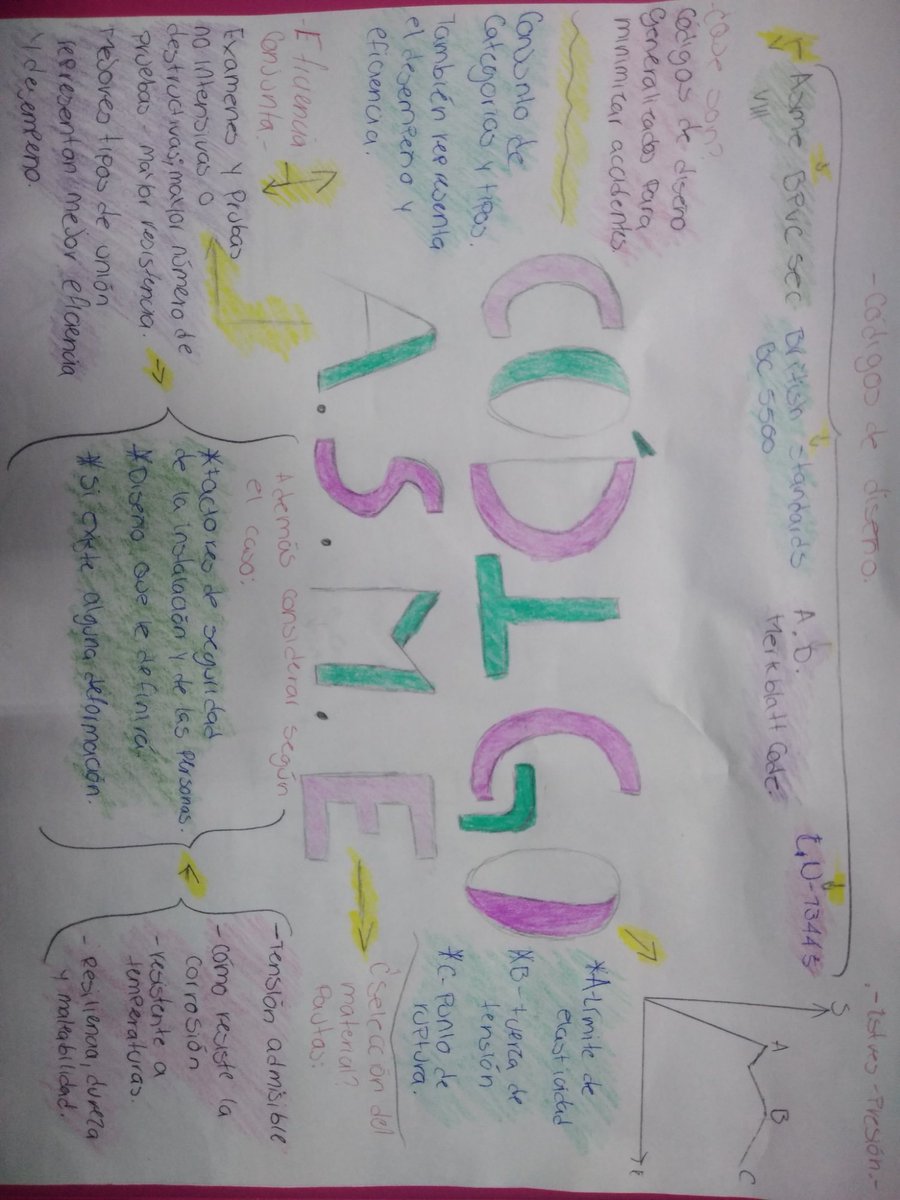 -Códigos de diseño.
Asme BPVC sec
VIII
British standards
BC 5500
A.D.
Merkblatt Code.
EN-13445
¿Qué son?
códigos de diseño
generalizados para
minimizar accidentes
Conjunto de
Categorías y tipos.
También representa
el desempeño y
eficiencia.
-Eficiencia
Conjunta-
Examenes y Prubas
no intensivas o
destructivas, mayor número de
pruebas - mayor resistencia.
Mejores tipos de unión
representan mejor eficiencia
y desempeño.
CÓDIGO
A.S.M.E
Además considerar según
el caso:
*Factores de seguridad
de la instalación y de las personas.
*Diseño que le definirá
*Si existe alguna deformación.
.-Estres-Presión.-
S
A
B
C
E
*A límite de
elasticidad
*B-fuerza de
tensión
*C-Punto de
ruptura.
¿Selección del
material?
Pautas:
-Tensión admisible
-cómo resiste la
corrosión
-resistente a
temperaturas.
-Resiliencia, dureza
y maleabilidad.